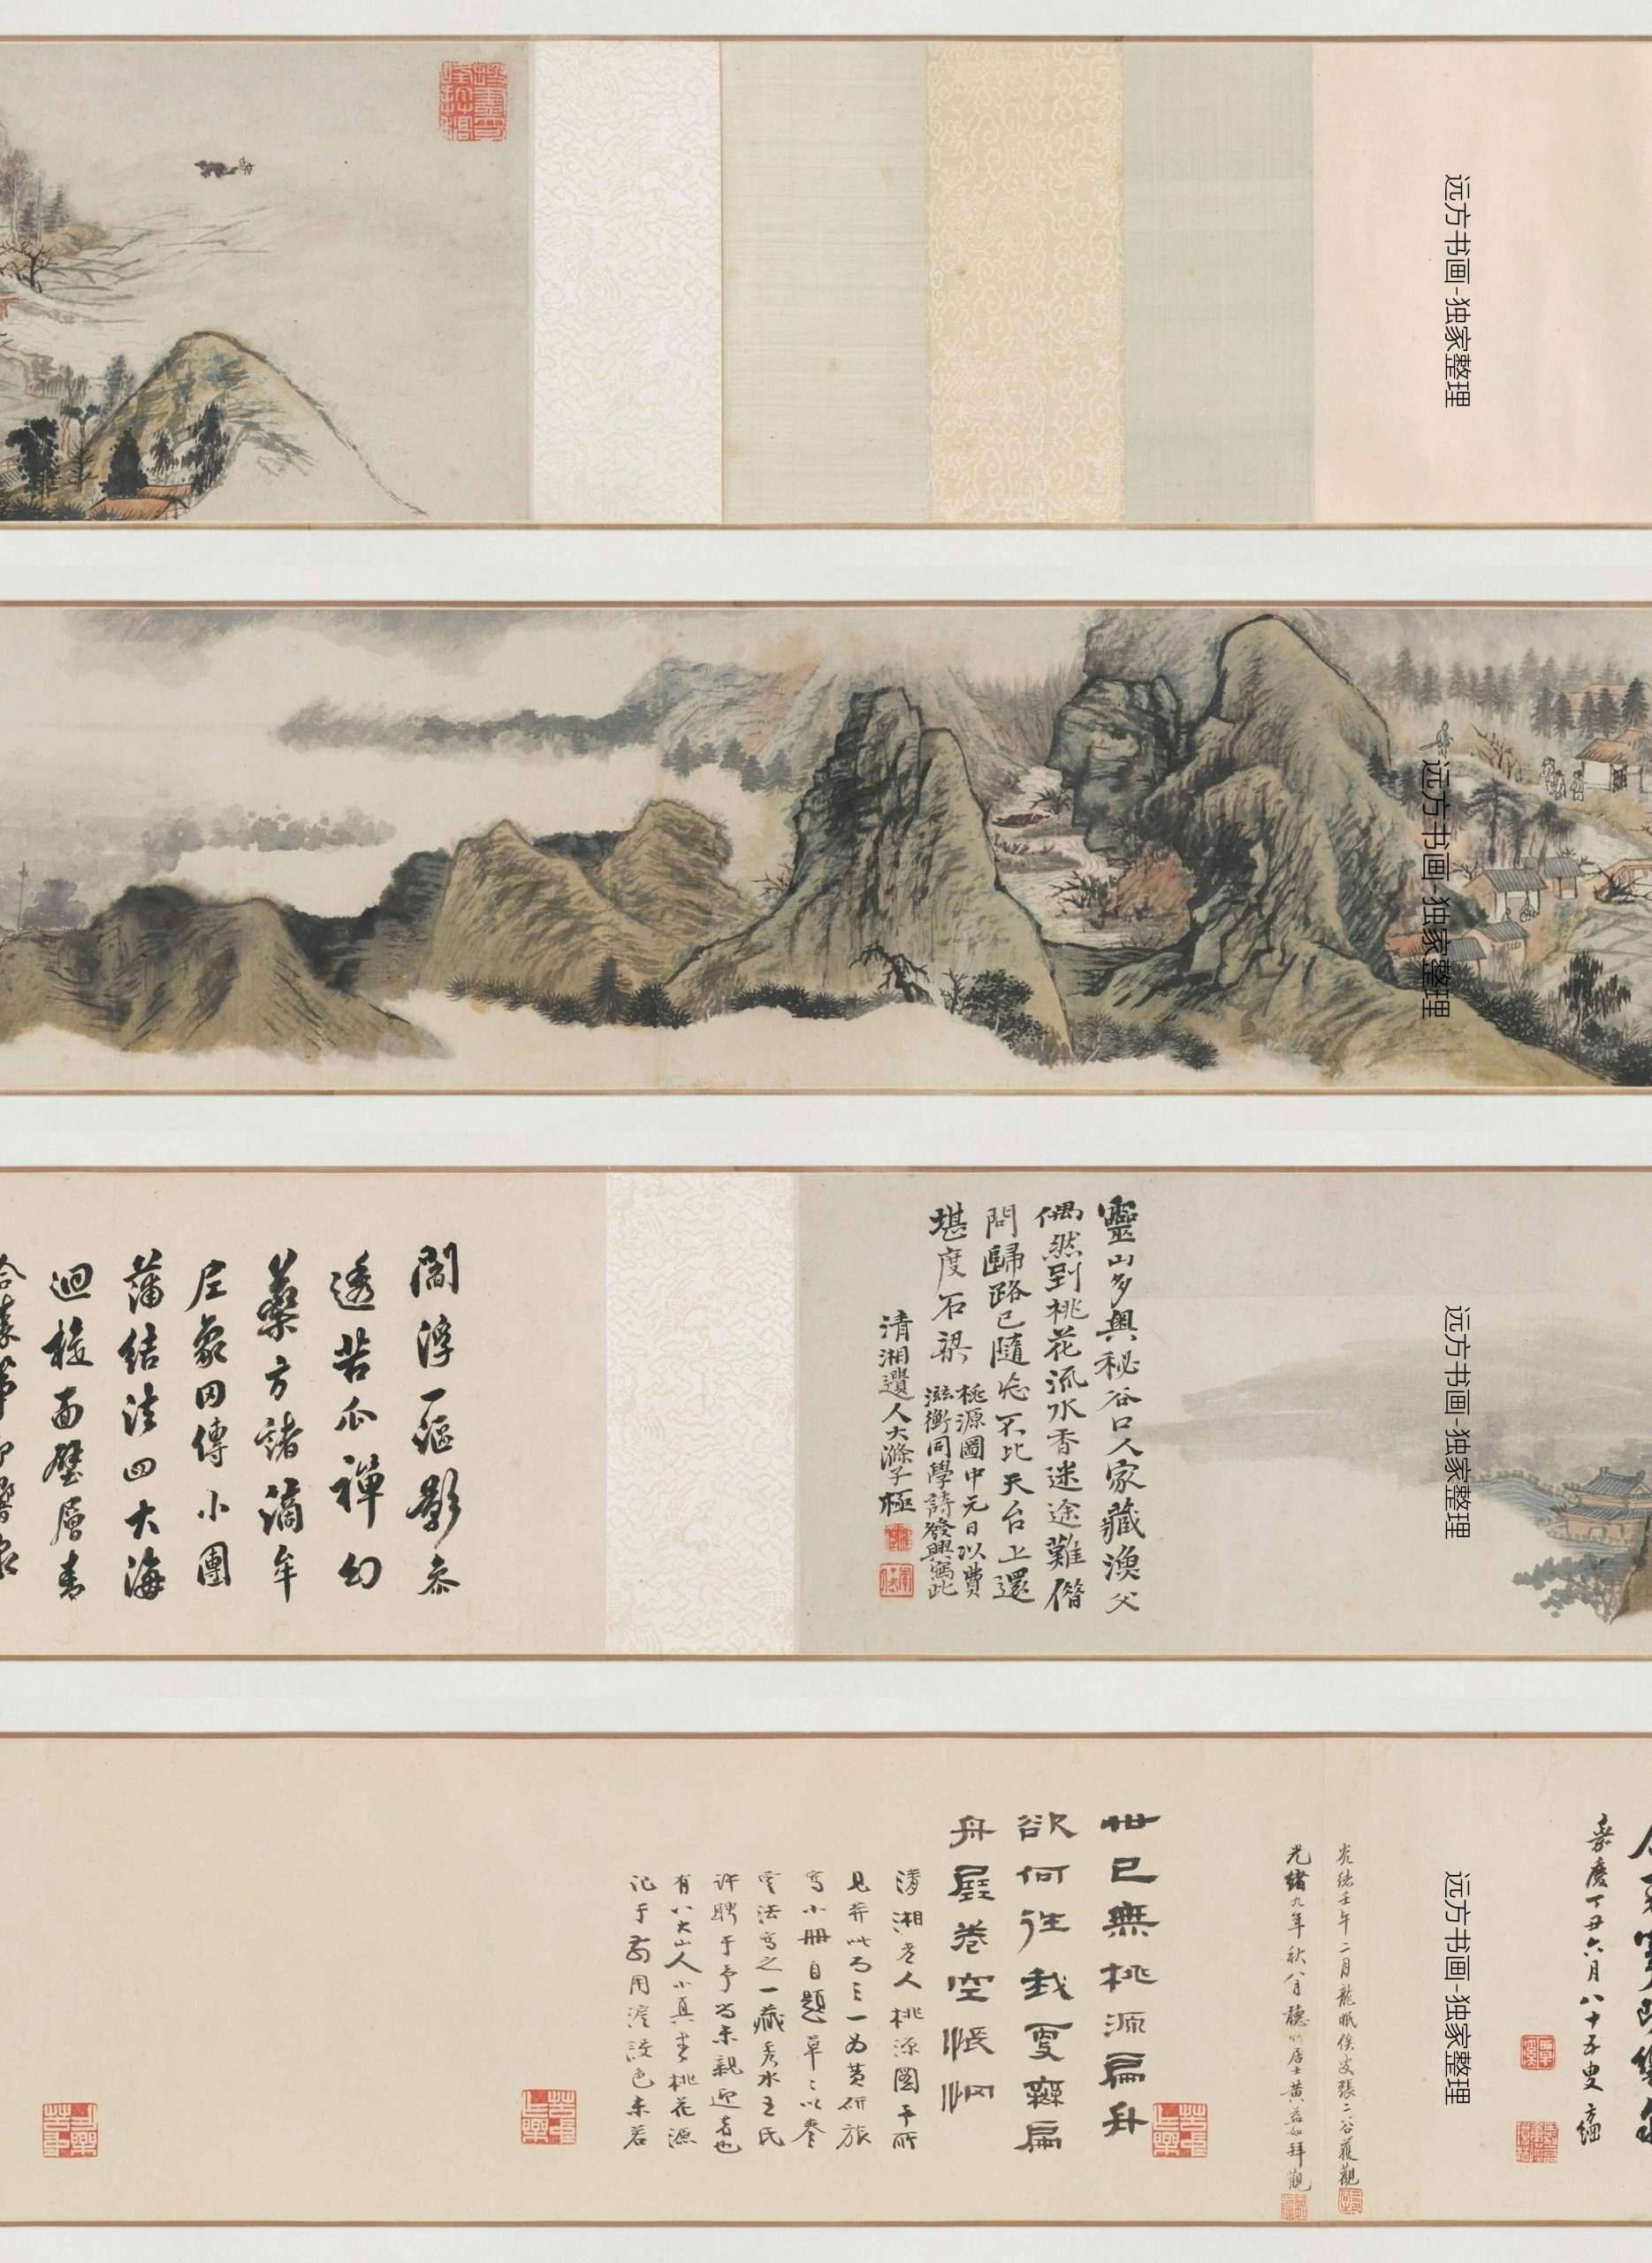 远方书画-独家整理
远方书画-独家整理
靈山多奧秘谷口人家藏漁父
偶然到桃花流水香迷途難借
問歸路已隨忘不比天台上還
堪度石梁
桃源圖中元日以費
滋衡同學詩發興寫此
清湘遺人大滌子極
远方书画-独家整理
閻浮一漚影忝
透苦瓜禪幻
藥方諸滴牟
尼象因傳小團
蒲結法四大海
迴捴面壁層青
嘉慶丁丑六月八十五叟方綱
光緒壬午二月龍眠侯安張二谷獲觀
光緒九年秋八月聽竹居士黃益如拜觀
远方书画-独家整理
世已無桃源扁舟
欲何往我更辭扁
舟展卷空悵惘
清湘老人桃源圖予所
見并此而三一為黃研旅
寫小冊自題草草以拳
雲法寫之一藏秀水王氏
許聘于予尚未親迎者也
有八大山人小真書桃花源
記于前用濃設色未若